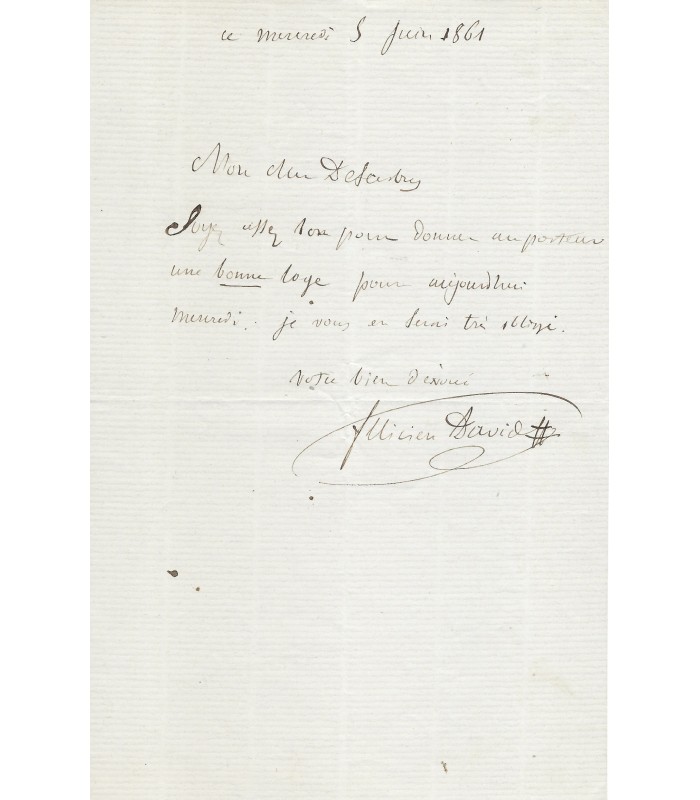 ce mercredi 5 juin 1861
Mon cher Desarbres
Soyez assez bon pour donner au porteur
une bonne loge pour aujourd'hui
mercredi. je vous en serai très obligé.
votre bien dévoué
félicien David